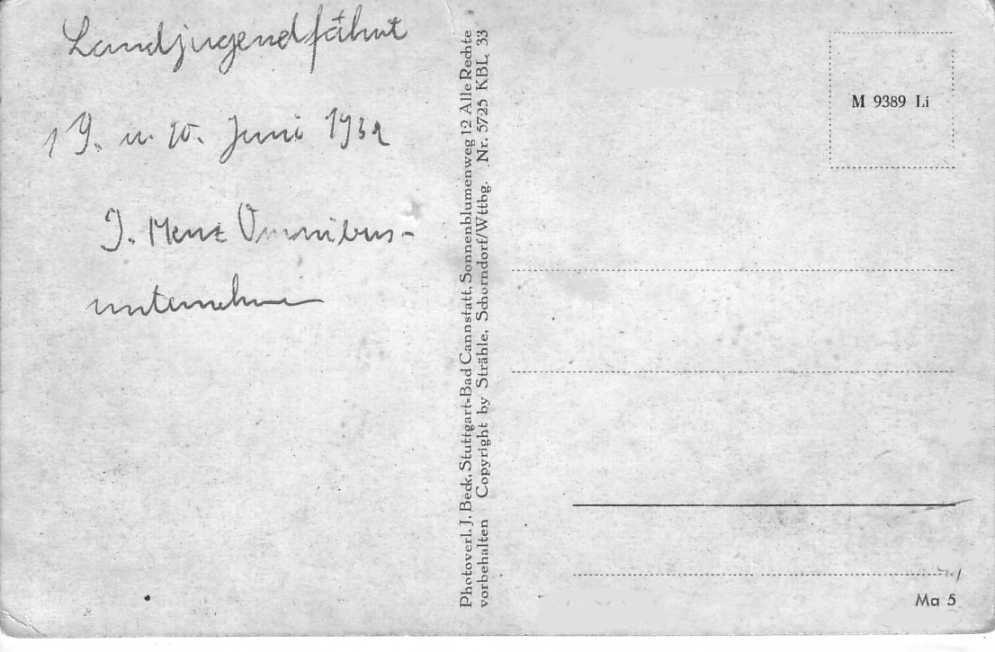 Landjugendfahrt
19. u. 20. Juni 1932
J. Menz Omnibus-
unternehmen
Photoverl. J. Beck, Stuttgart-Bad Cannstatt, Sonnenblumenweg 12 Alle Rechte
vorbehalten Copyright by Strähle, Schorndorf/Wttbg. Nr. 5725 KBL, 33
M 9389 Li
Ma 5